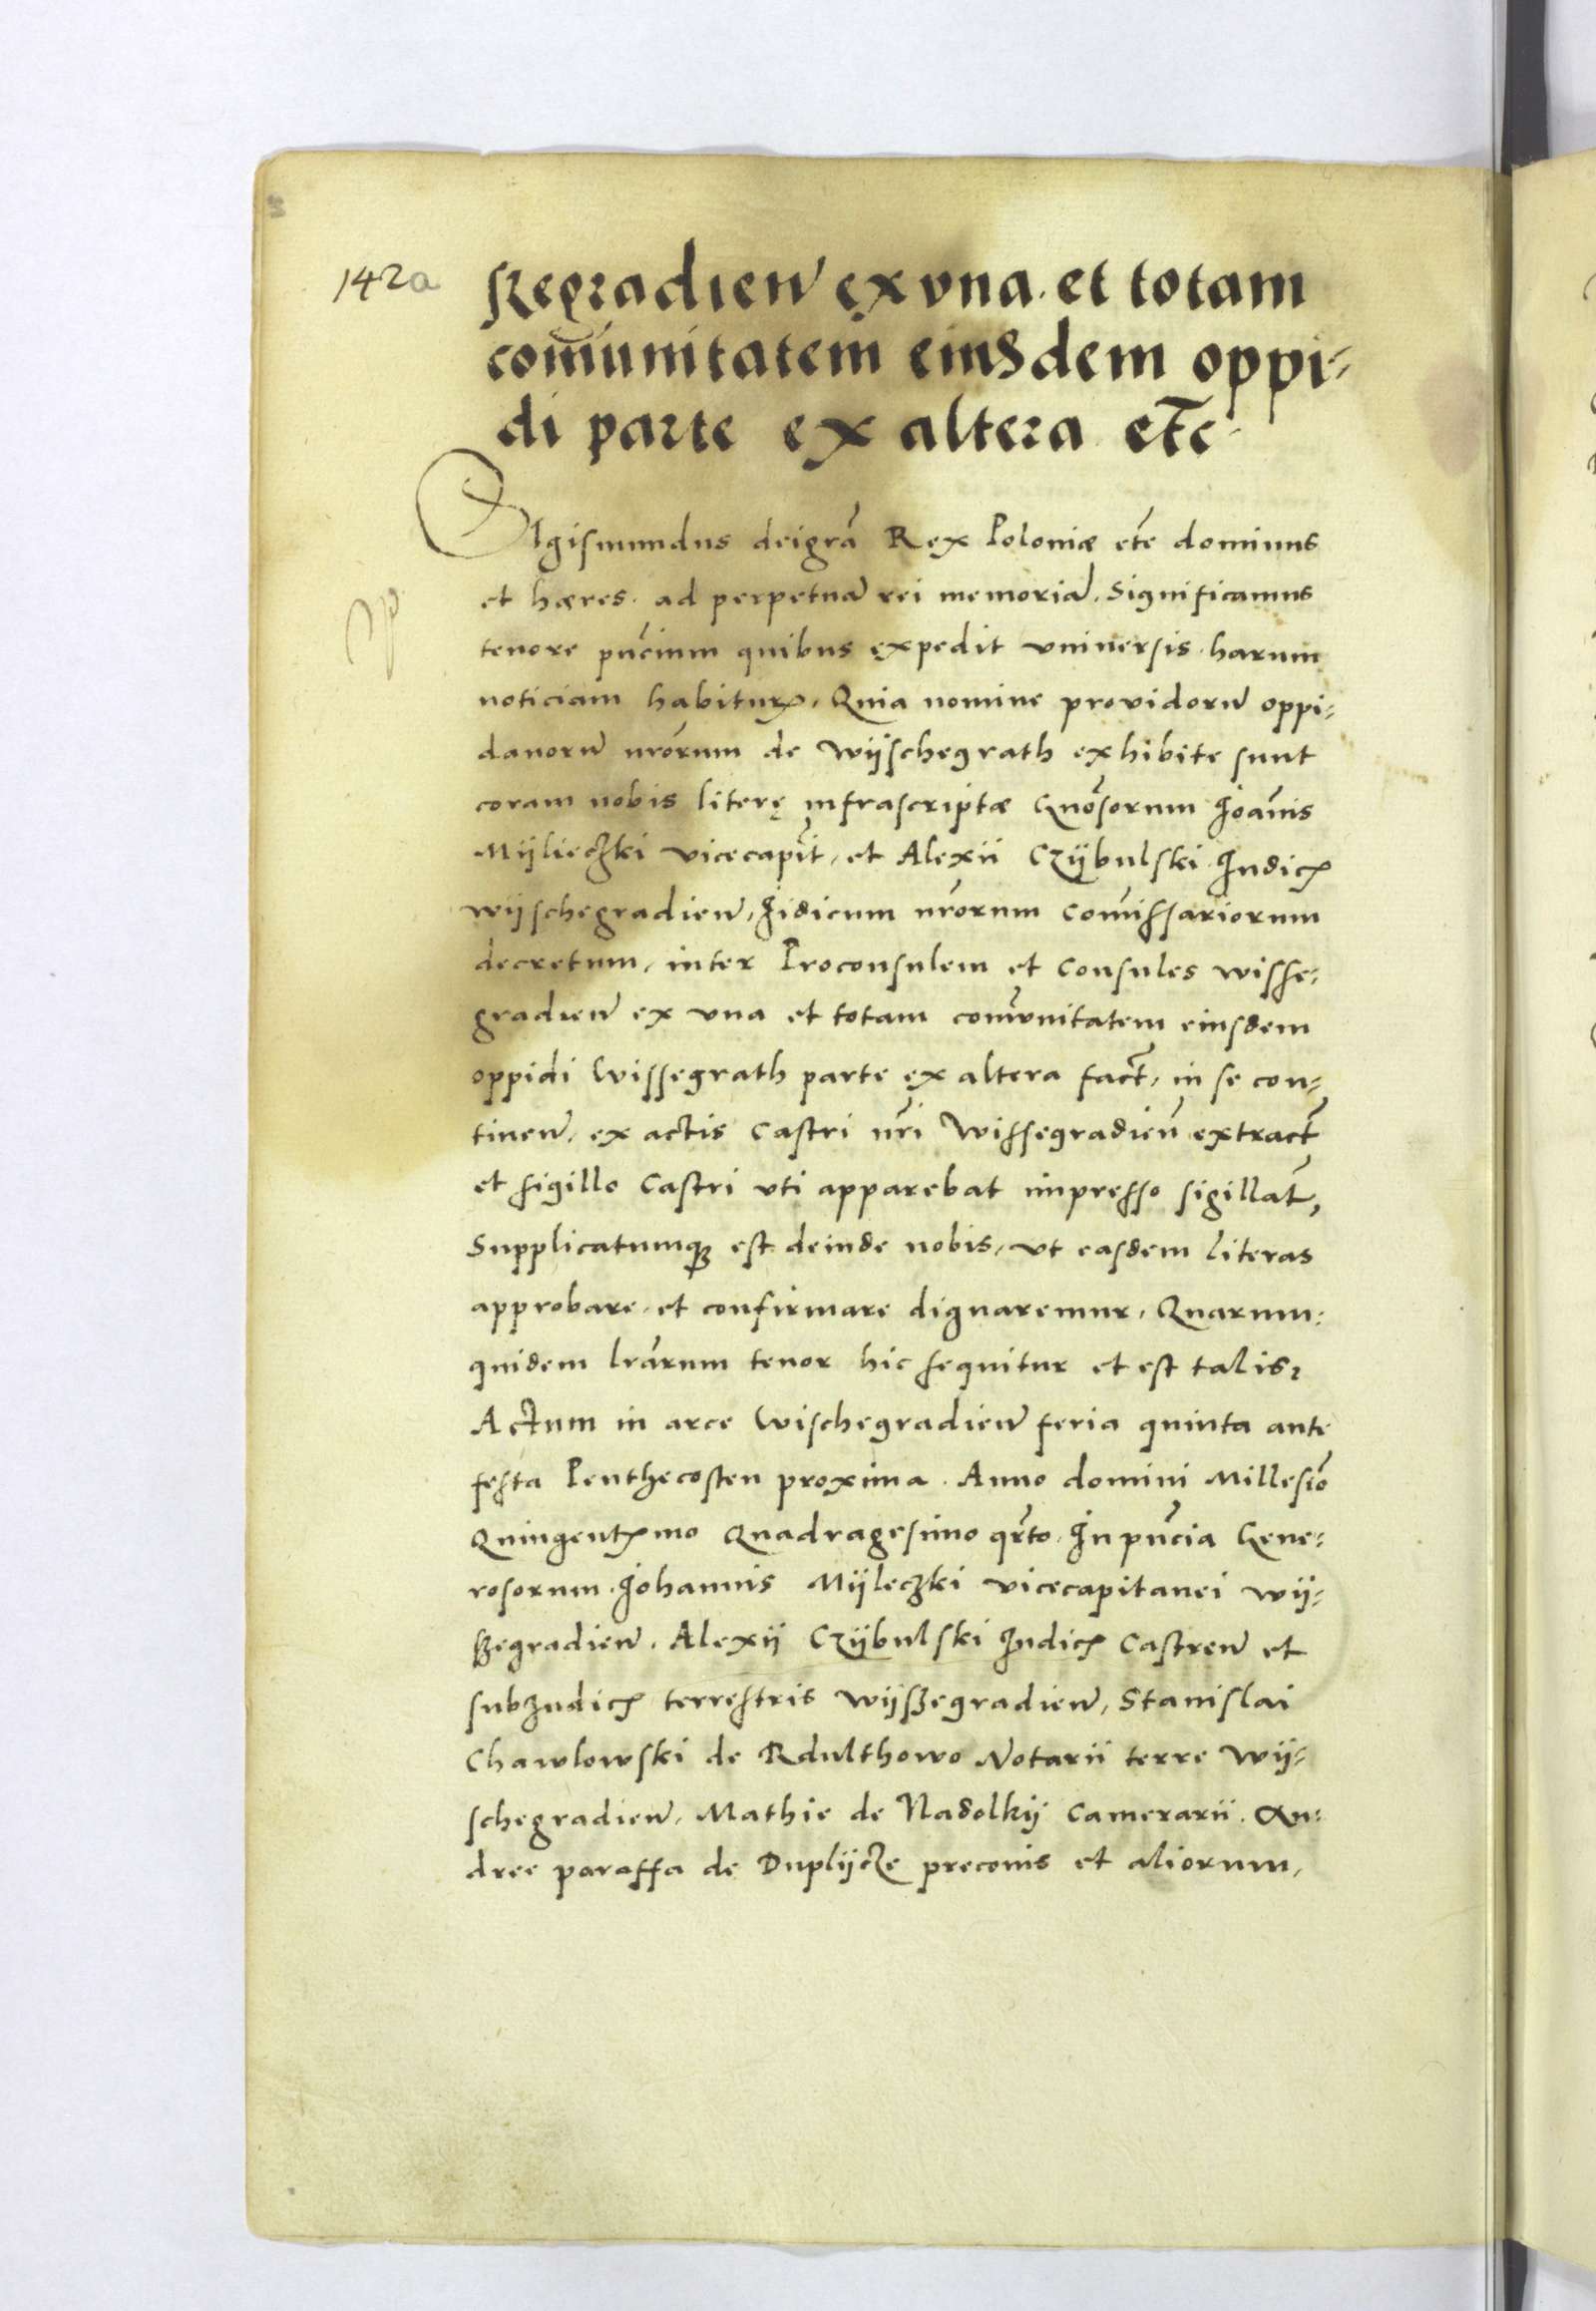 142a
szegradien̄ ex vna. et totam
com̄unitatem eiusdem oppi-
di parte ex altera etc̄.
Sigismundus dei gr̄a Rex Poloniæ etc̄ dominus
et hæres. ad perpetuā rei memoriā. Significamus
tenore pn̄cium quibus expedit vniuersis. harum
noticiam habituꝝ. Quia nomine prouidorū oppi-
danorū nr̄orum de Wÿschegrath exhibite sunt
coram nobis literę infrascriptæ Gn̄osorum Joan̄is
Mÿlieczki vicecapit̄, et Alexii Czÿbulski Judicꝭ
wÿschegradien̄, Jidicum nr̄orum Com̄issariorum
decretum, inter Proconsulem et Consules wisse-
gradien̄ ex vna et totam com̄vnitatem eiusdem
oppidi Wissegrath parte ex altera fact̄, in se con-
tinen̄, ex actis Castri nr̄i Wissegradien̄ extract̄
et sigillo Castri vti apparebat impresso sigillat̄,
Supplicatumqꝫ est deinde nobis, vt easdem literas
approbare, et confirmare dignaremur, Quarum-
quidem lr̄arum tenor hic sequitur et est talis,
Actum in arce Wischegradien̄ feria quinta ante
festa Penthecosten proxima. Anno domini Millesīo
Quingentꝭmo Quadragesimo qr̄to. In pn̄cia Gene-
rosorum. Johannis Mÿleczki vicecapitanei wÿ-
szegradien̄. Alexÿ Czÿbulski Judicꝭ Castren̄ et
subJudicꝭ terrestris wÿszegradien̄, Stanislai
Chawlowski de Rdulthowo Notarii terre Wÿ-
schegradien̄, Mathie de Nadolkÿ Camerarii. An-
dree paraffa de Duplÿcze preconis et aliorum,